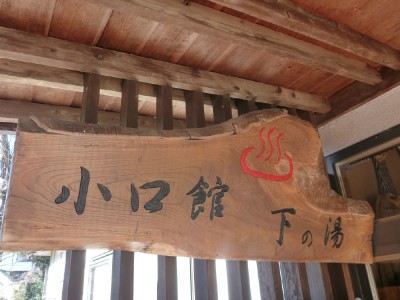 小口館
下の湯